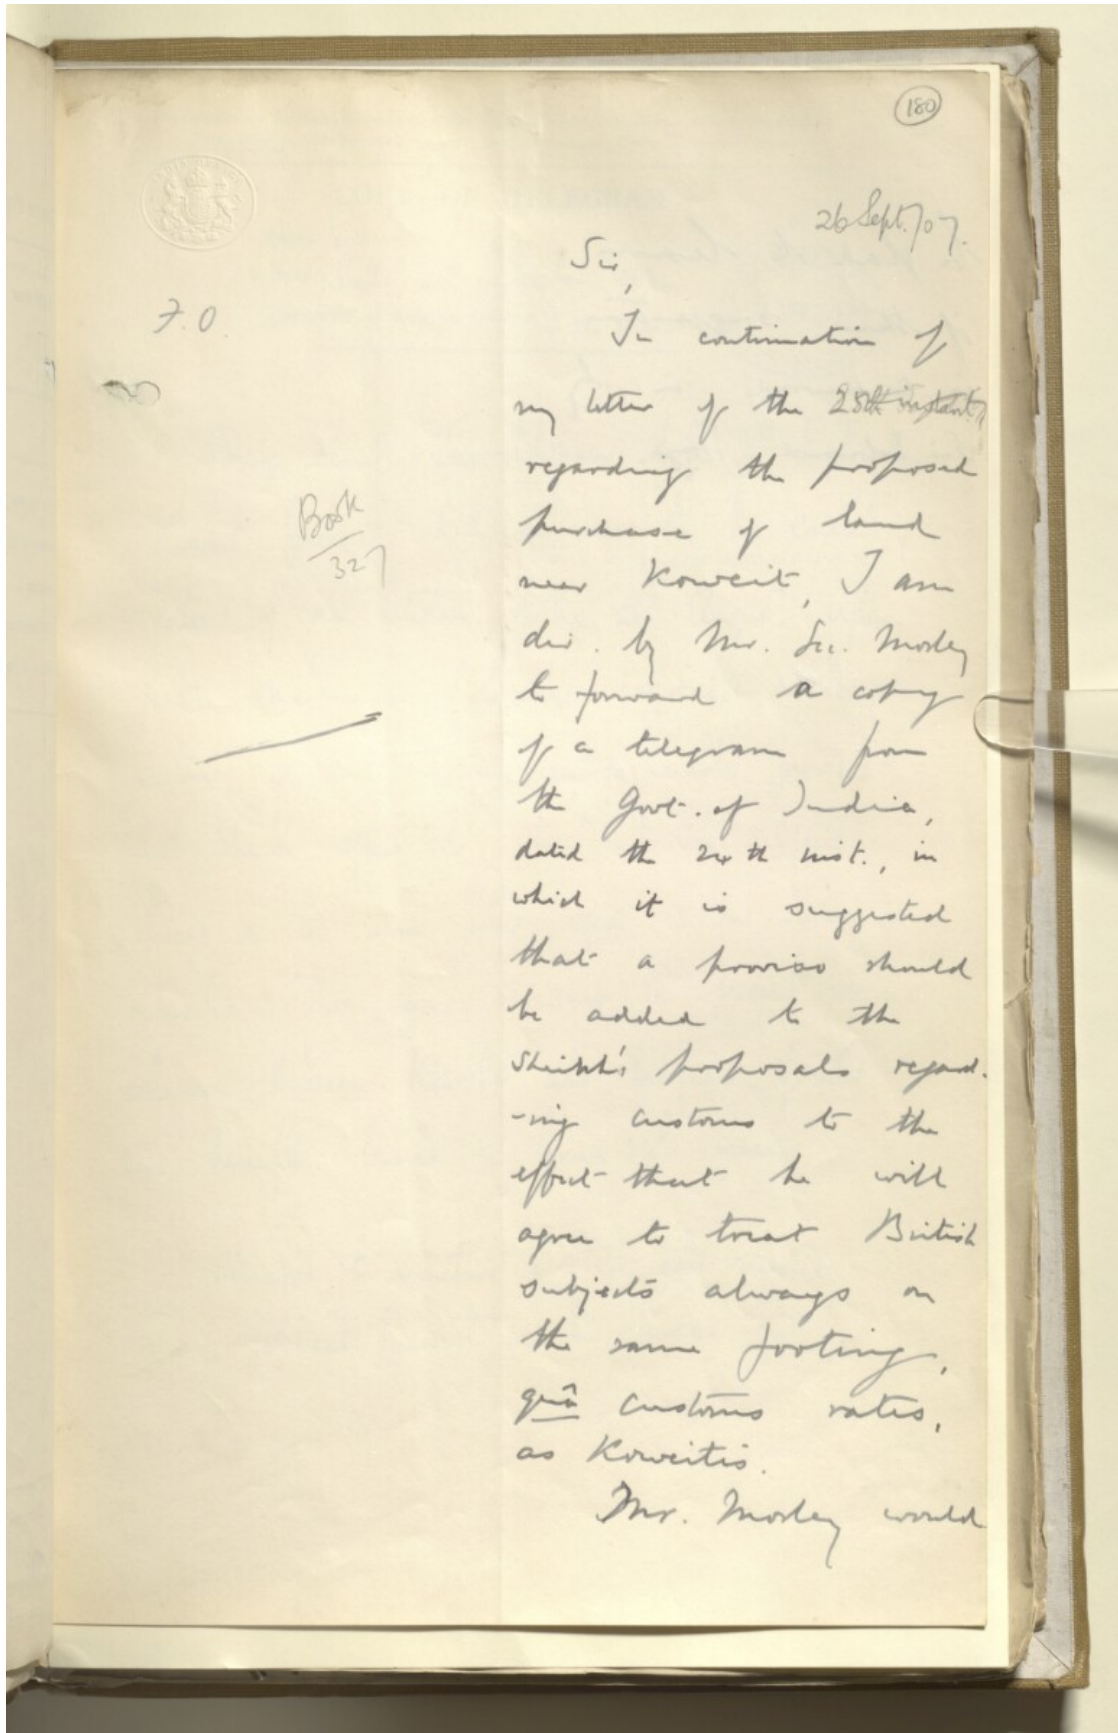 180
26 Sept./07.
Sir,
F.O.
In continuation of
my letter of the 25th instant,
regarding the proposed
Book
327
purchase of land
near Koweit, I am
dir. by Mr. Sec. Morley
to forward a copy
of a telegram from
the Govt. of India,
dated the 24th inst., in
which it is suggested
that a proviso should
be added to the
Sheikh's proposals regard-
-ing customs to the
effect that he will
agree to treat British
subjects always on
the same footing,
quâ customs rates,
as Koweitis.
Mr. Morley would